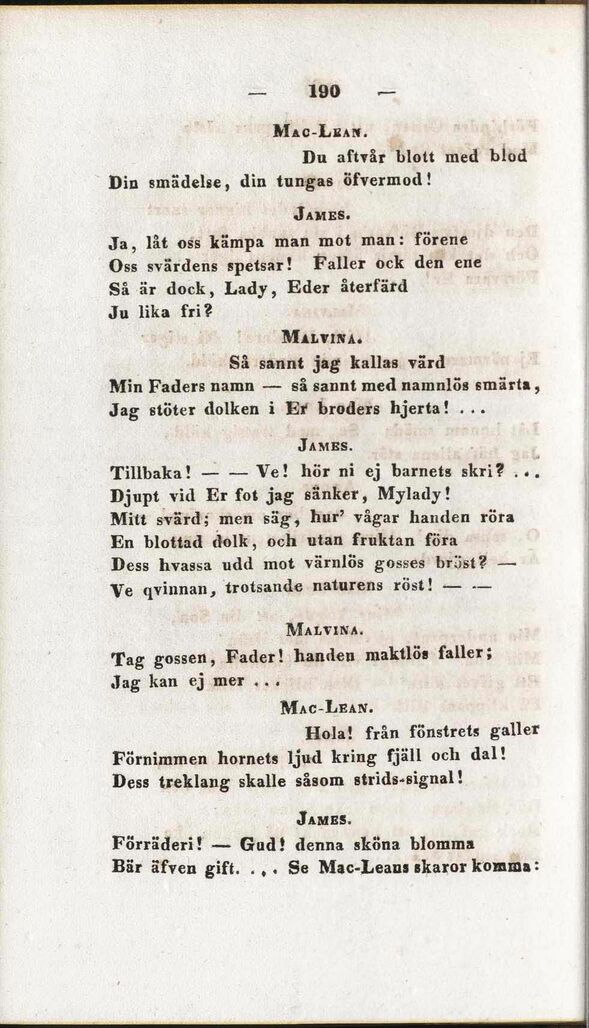 — 190 —
MAC-LEAN.
Du aftvår blott med blod
Din smädelse, din tungas öfvermod!
JAMES.
Ja, låt oss kämpa man mot man: förene
Oss svärdens spetsar! Faller ock den ene
Så är dock, Lady, Eder återfärd
Ju lika fri?
MALVINA.
Så sannt jag kallas värd
Min Faders namn — så sannt med namnlös smärta,
Jag stöter dolken i Er broders hjerta! ...
JAMES.
Tillbaka! — — Ve! hör ni ej barnets skri? ...
Djupt vid Er fot jag sänker, Mylady!
Mitt svärd; men säg, hur' vågar handen röra
En blottad dolk, och utan fruktan föra
Dess hvassa udd mot värnlös gosses bröst? —
Ve qvinnan, trotsande naturens röst! — —
MALVINA.
Tag gossen, Fader! handen maktlös faller;
Jag kan ej mer ...
MAC-LEAN.
Hola! från fönstrets galler
Förnimmen hornets ljud kring fjäll och dal!
Dess treklang skalle såsom strids-signal!
JAMES.
Förräderi! — Gud! denna sköna blomma
Bär äfven gift. ... Se Mac-Leans skaror komma: